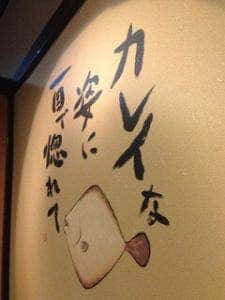 カレイな
姿に
一目で惚れて